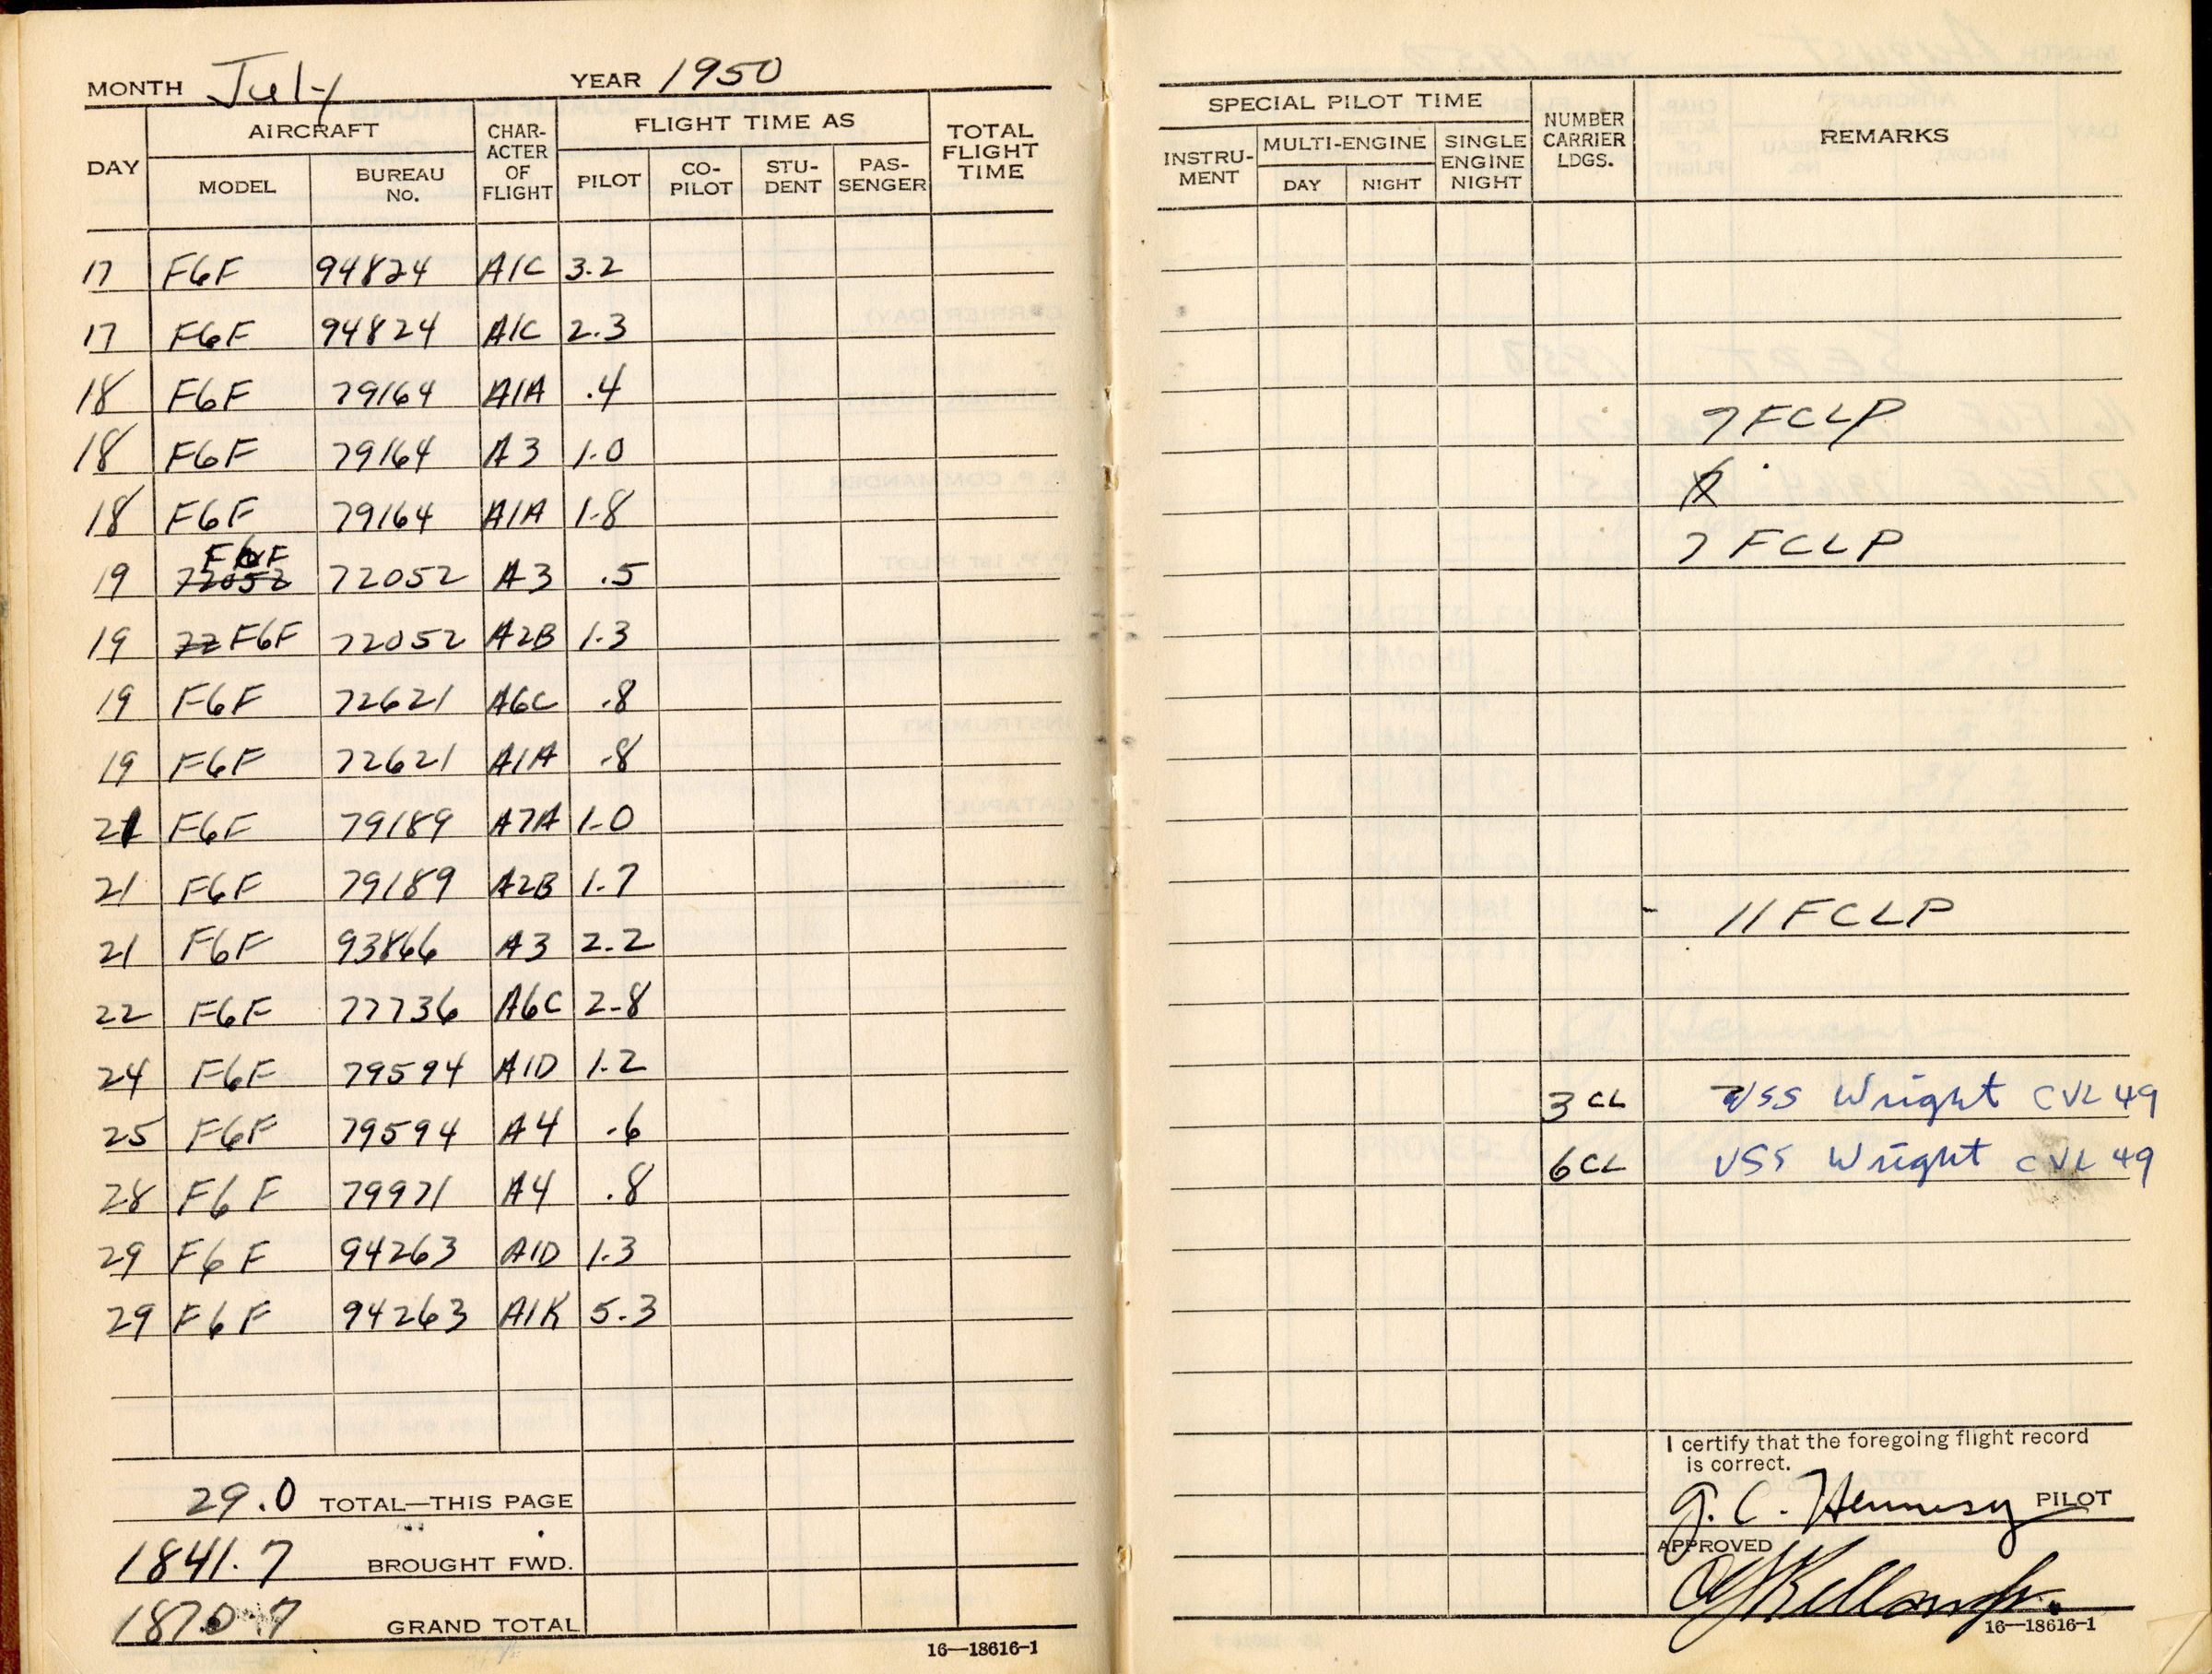 MONTH July YEAR 1950
DAY AIRCRAFT CHAR-ACTER OF FLIGHT FLIGHT TIME AS TOTAL FLIGHT TIME
MODEL BUREAU No. PILOT CO-PILOT STU-DENT PAS-SENGER
17 F6F 94824 A1C 3.2
17 F6F 94824 A1C 2.3
18 F6F 79164 A1A .4
18 F6F 79164 A3 1.0
18 F6F 79164 A1A 1.8
F6F
19 72052 72052 A3 .5
19 72 F6F 72052 A2B 1.3
19 F6F 72621 A6C .8
19 F6F 72621 A1A .8
21 F6F 79189 A7A 1.0
21 F6F 79189 A2B 1.7
21 F6F 93866 A3 2.2
22 F6F 77736 A6C 2.8
24 F6F 79594 A1D 1.2
25 F6F 79594 A4 .6
28 F6F 79971 A4 .8
29 F6F 94263 A1D 1.3
29 F6F 94263 A1K 5.3
29.0 TOTAL—THIS PAGE
1841.7 BROUGHT FWD.
1870.7 GRAND TOTAL
16—18616-1
SPECIAL PILOT TIME NUMBER CARRIER LDGS. REMARKS
INSTRU-MENT MULTI-ENGINE SINGLE ENGINE NIGHT
DAY NIGHT
7 FCLP
7 FCLP
11 FCLP
3 CL USS Wright CVL 49
6 CL USS Wright CVL 49
I certify that the foregoing flight record
is correct.
G. C. Hennesy PILOT
APPROVED
16—18616-1